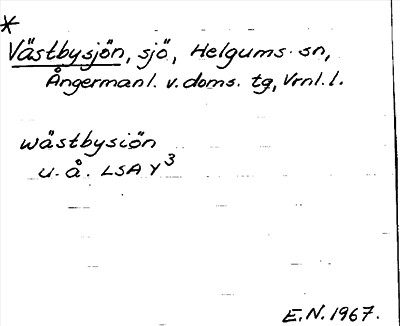 *
Västbysjön, sjö, Helgums sn,
Ångermanl. v. doms. tg, Vrnl. l.
wästbysiön
u. å. LSA Y3
E.N. 1967.